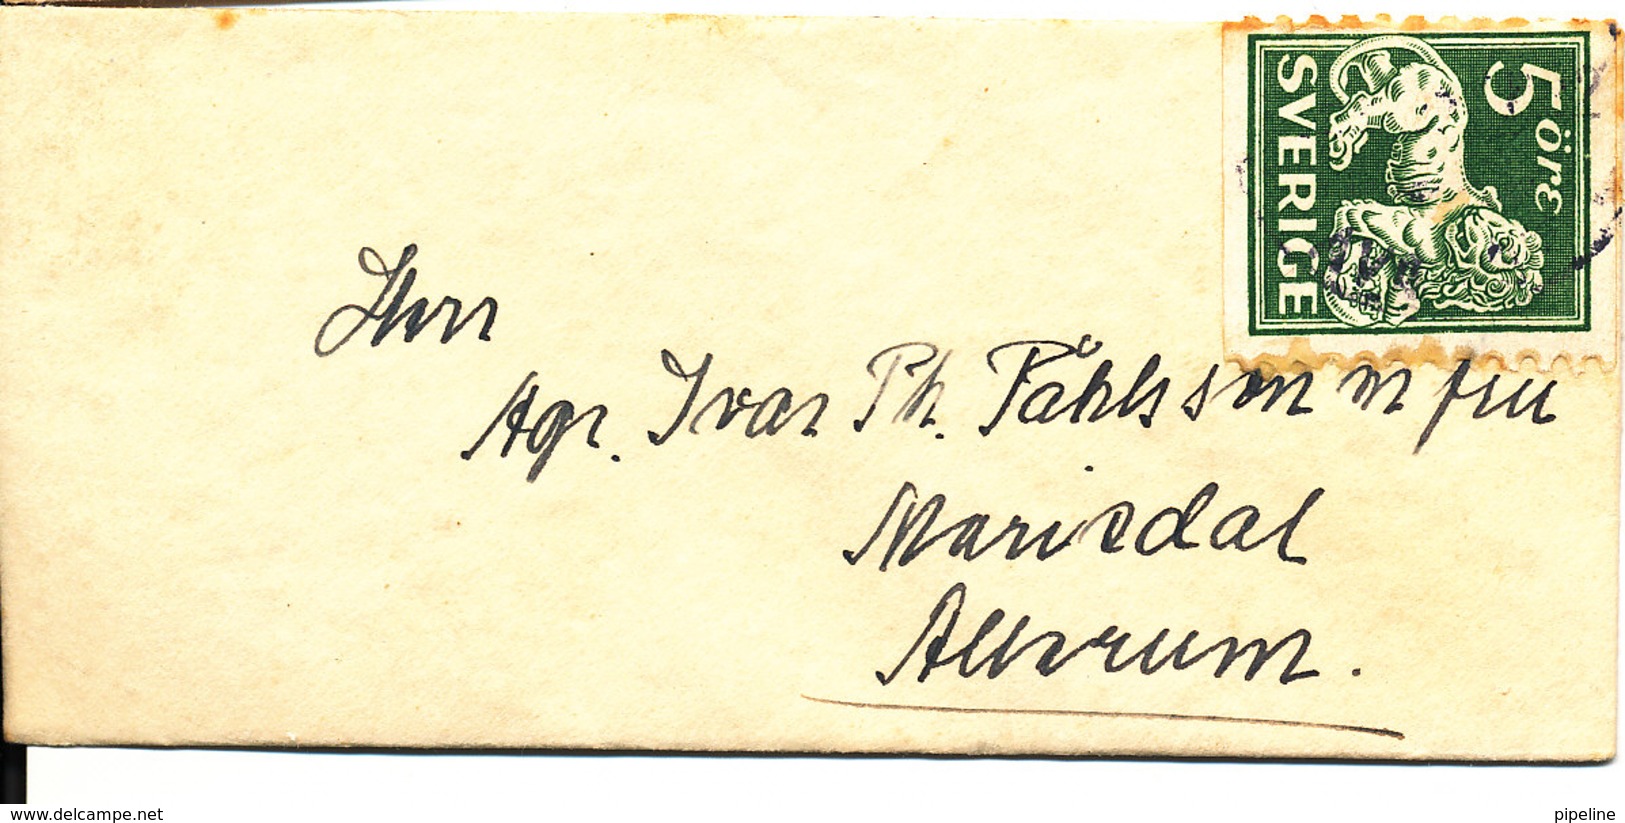 5 öre
SVERIGE
Herr
Agr. Ivar Ph. Påhlsson m fru
Marisdal
Allerum.
www.delcampe.net
pipeline